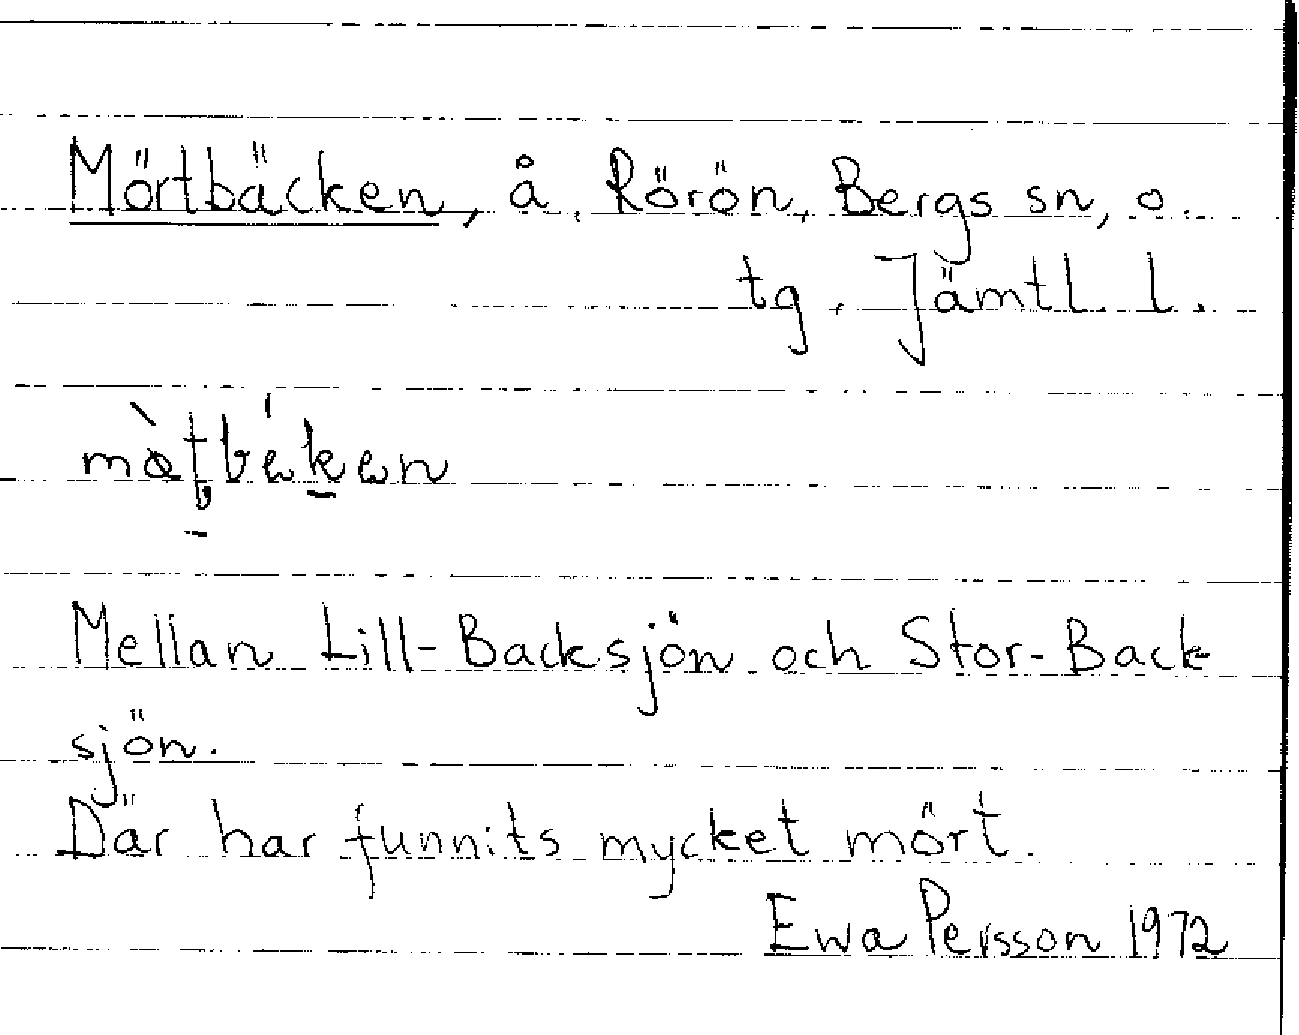 Mörtbäcken, å, Rörön, Bergs sn, o.
tg. Jämtl. l.
Mellan Lill-Backsjön och Stor-Back
sjön.
Där har funnits mycket mört.
Ewa Persson 1972